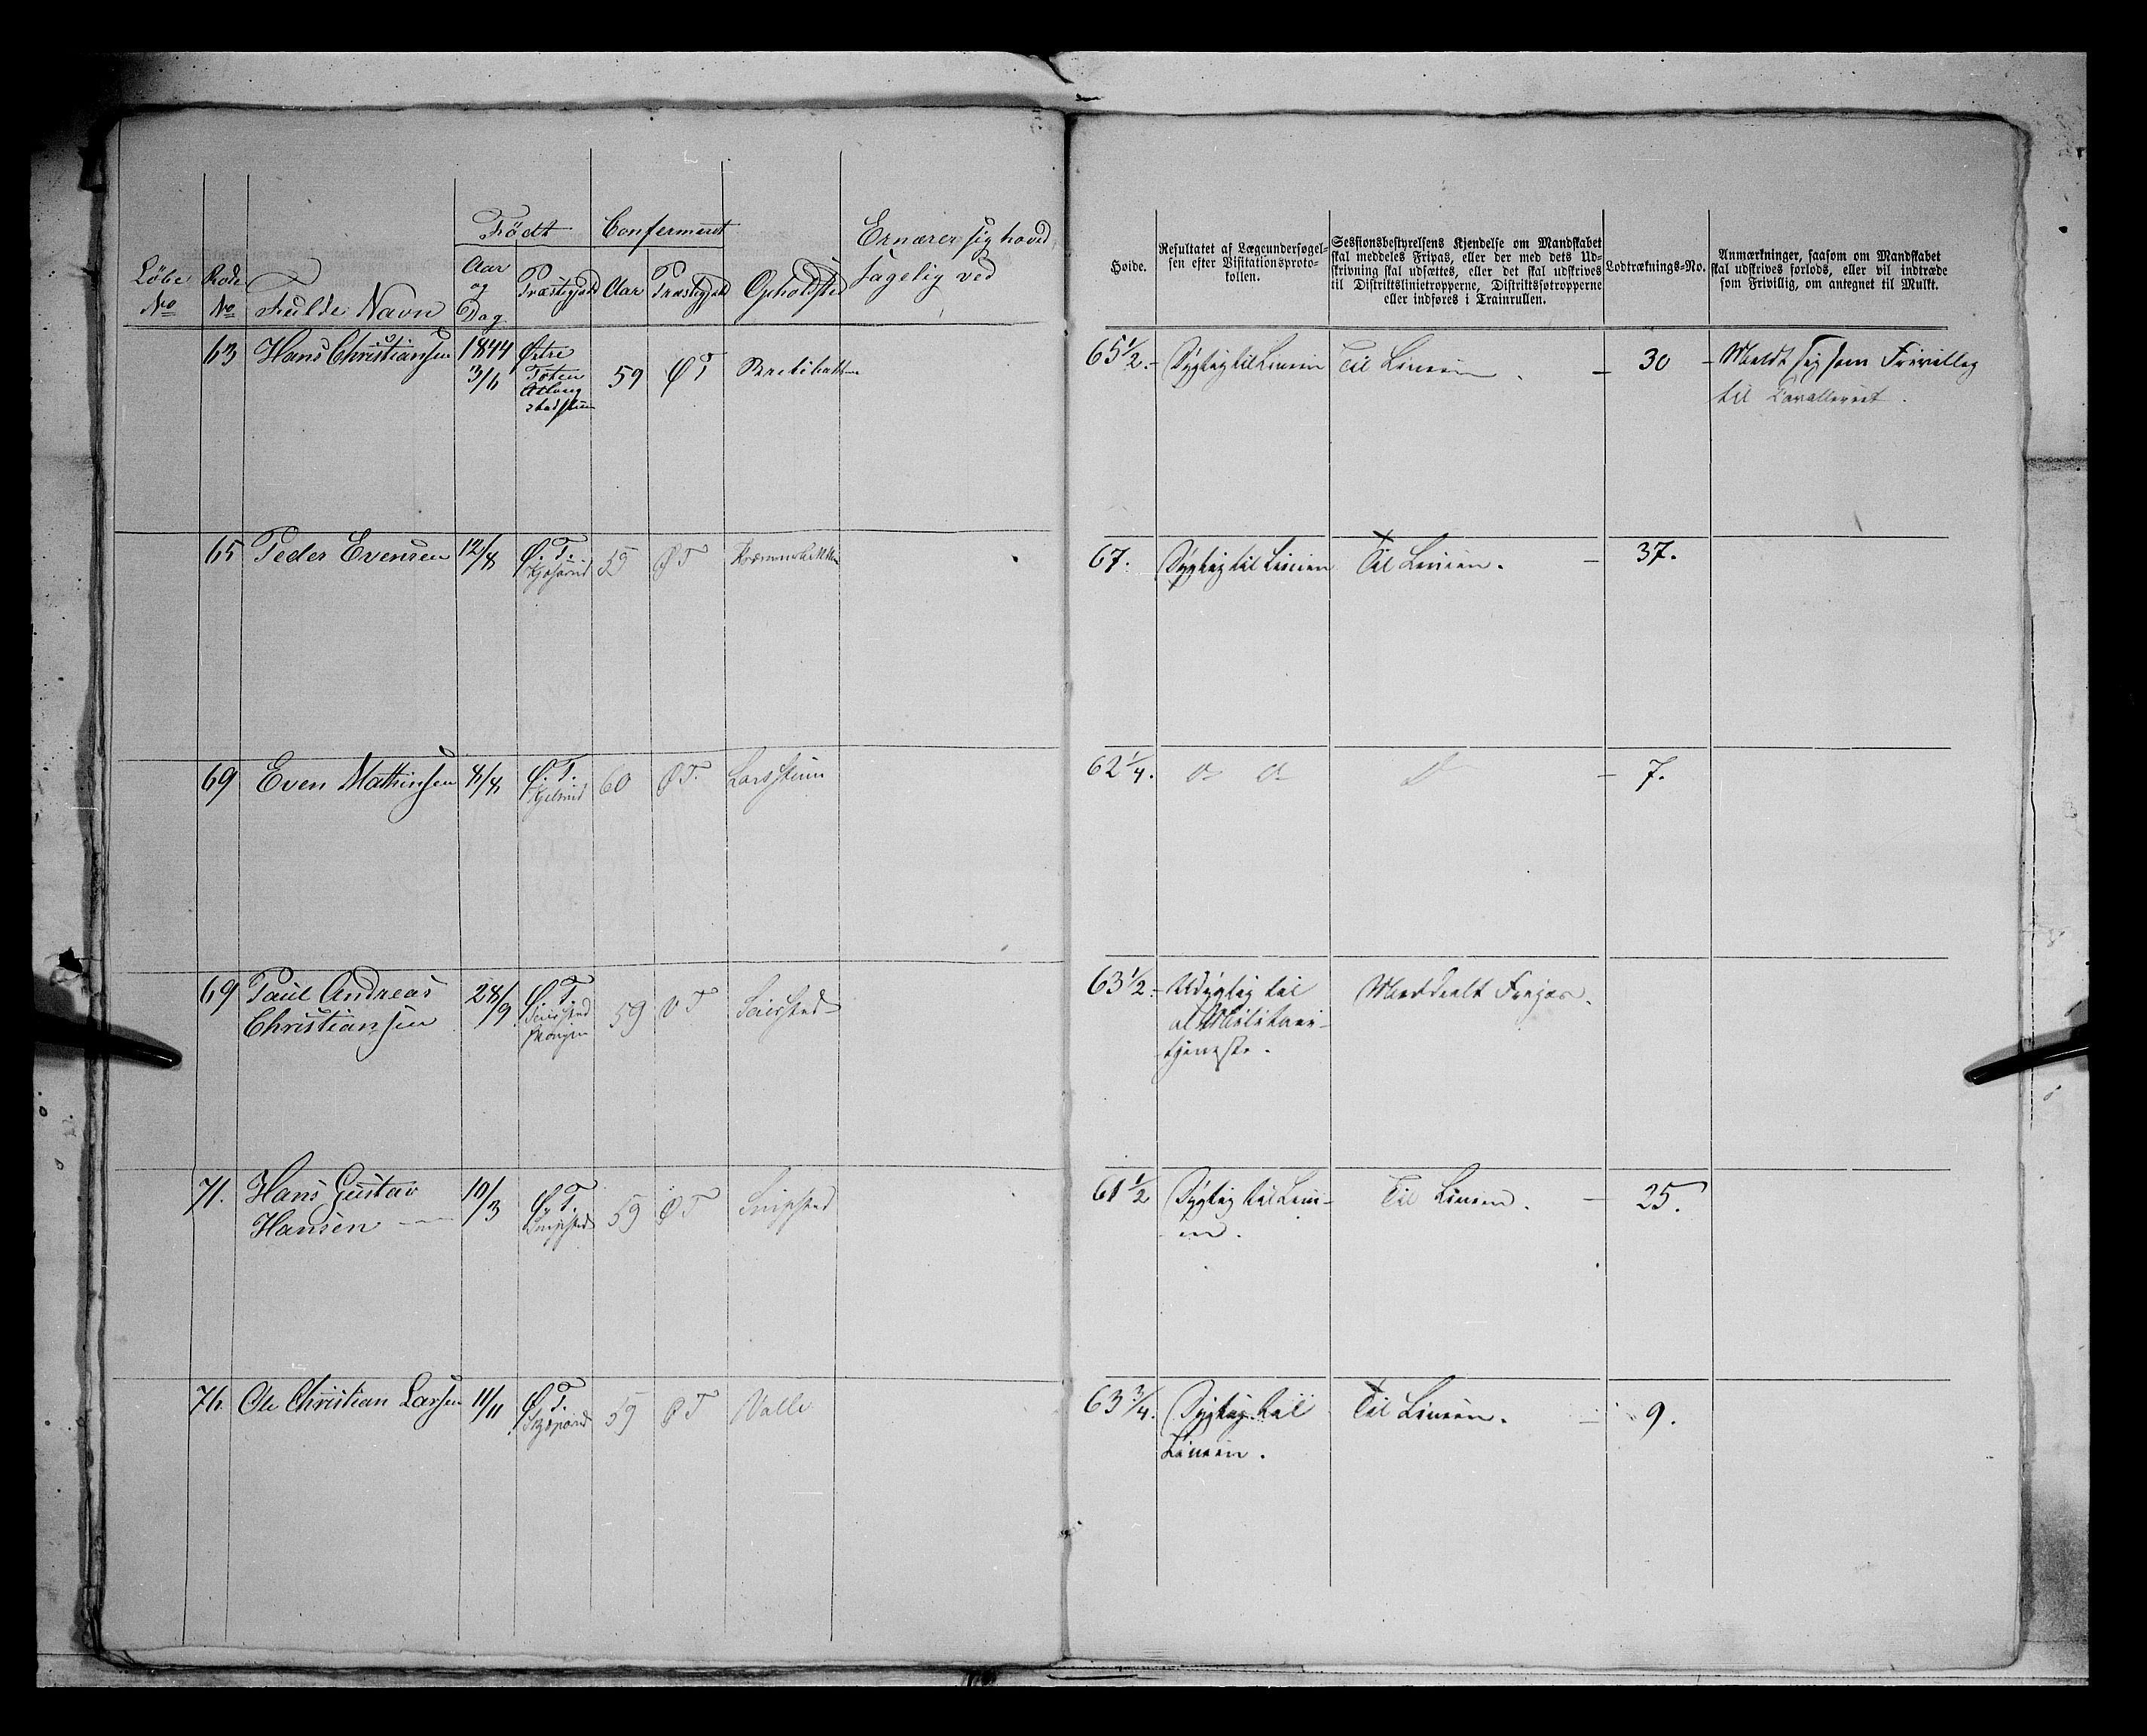 Født
Confermeret
Ernærer sig hoved
sagelig ved
Løbe
No
Rode
No
Fulde Navn
Aar
og
Dag
Præstegjeld
Aar
Præstegjeld
Opholdsted
63 Hans Christiansen 1844 Østre 59 Ø T
3/6 Toten
65 Peder Evensen 12/8 Ø. T. 59 Ø T
69 Even Mathinsen 4/8 Ø. T. 60 Ø T. Larsstuen
69 Paul Andreas 28/9 Ø. T. 59 Ø T
Christiansen
71. Hans Gustav 10/3 Ø. T. 59 Ø T
Hansen
76. Ole Christian Larsen 11/11 Ø. T. 59 Ø T Valle
Høide.
Resultatet af Lægeundersøgel-
sen efter Visitationsproto-
kollen.
Sessionsbestyrelsens Kjendelse om Mandskabet
skal meddeles Fripas, eller der med dets Ud-
skrivning skal udsættes, eller det skal udskrives
til Distriktslinietropperne, Distriktsfotropperne
eller indføres i Trainrullen.
Lodtræknings-No.
Anmærkninger, saasom om Mandskabet
skal udskrives forlods, eller vil indtræde
som Frivillig, om antegnet til Mulkt.
65 1/2. Dygtig til Linien Til Linien 30 Meldt sig som Frivillig
til Cavalleriet.
67. Dygtig til Linien Til Linien. 37.
62 1/4. do do do 7.
63 1/2. Udygtig til Meddeelt Fripas.
al Militair-
tjeneste.
61 1/2 Dygtig til Lini- Til Linien. 25.
en.
63 3/4. Dygtig til Til Linien. 9.
Linien.